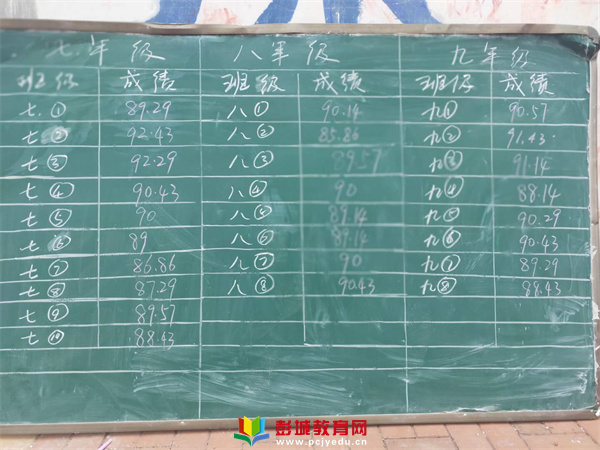 七年级 八年级 九年级
班级 成绩 班级 成绩 班级 成绩
七① 89.29 八① 90.14 九① 90.57
七② 92.43 八② 85.86 九② 91.43
七③ 92.29 八③ 九③ 91.14
七④ 90.43 八④ 90 九④ 88.14
七⑤ 90 八⑤ 89.14 九⑤ 90.29
七⑥ 89 八⑥ 89.14 九⑥ 90.43
七⑦ 86.86 八⑦ 90 九⑦ 89.29
七⑧ 87.29 八⑧ 90.43 九⑧ 88.43
七⑨ 89.57
七⑩ 88.43
彭城教育网
www.pcjyedu.cn